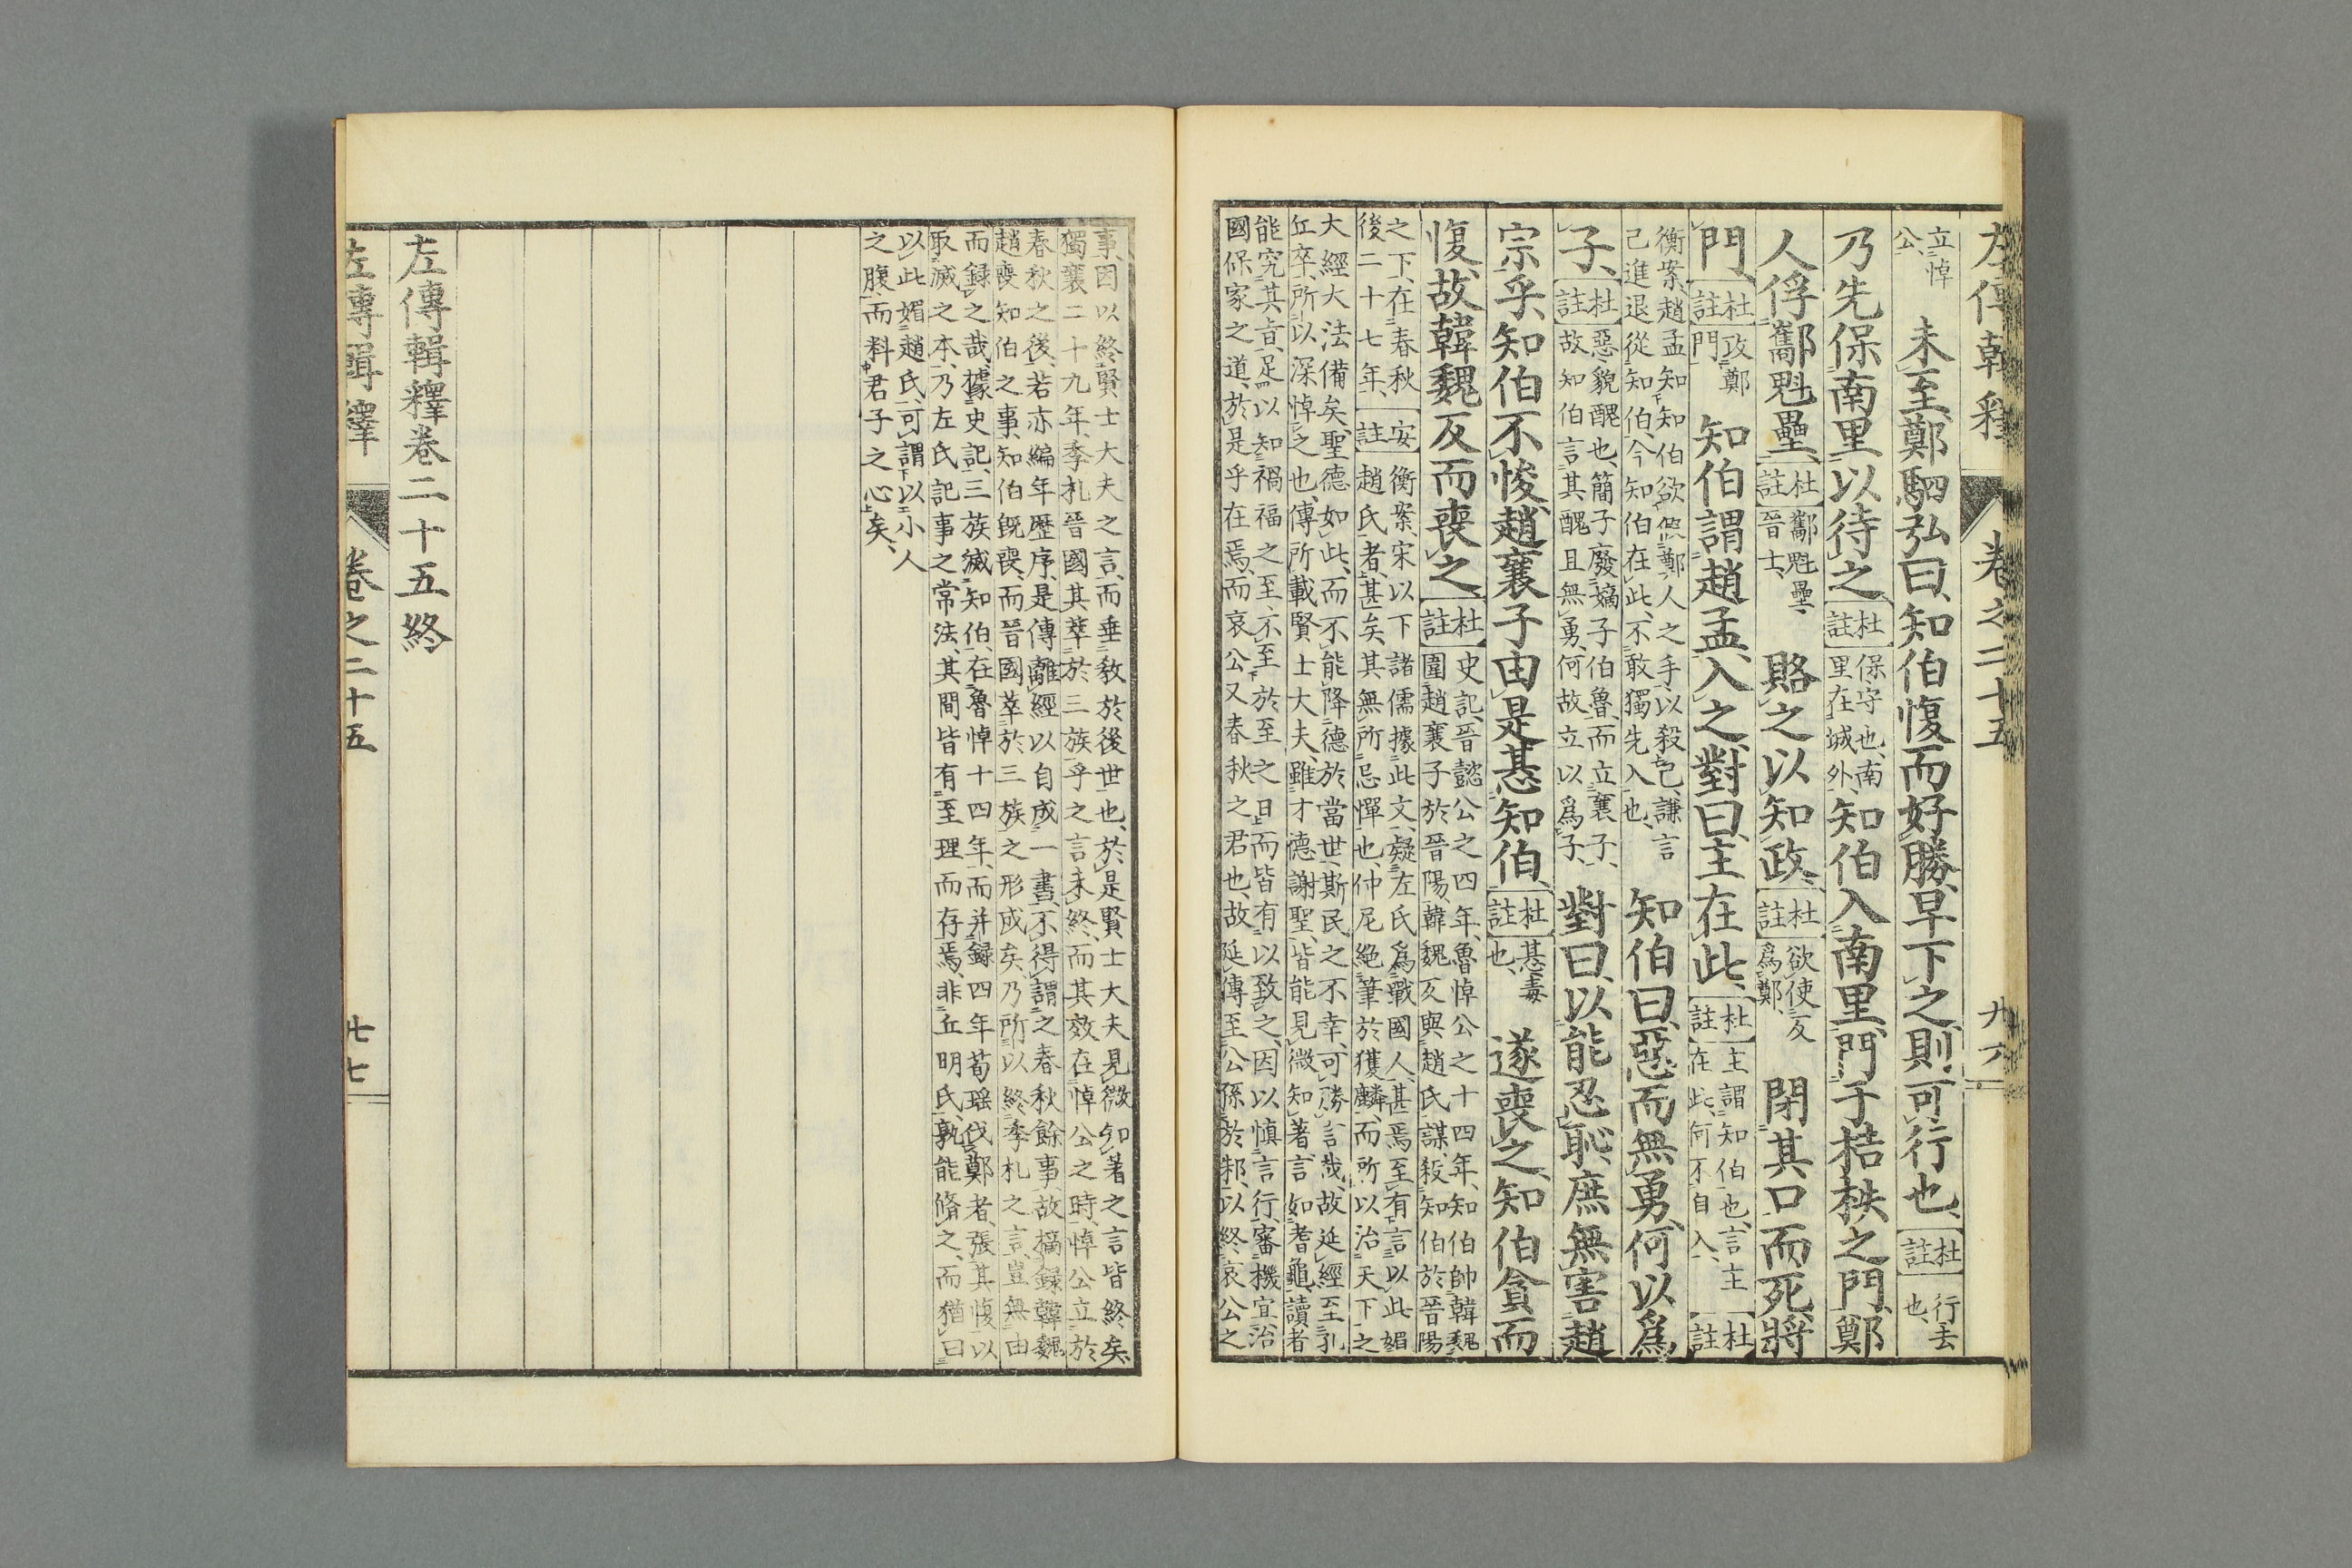 左傳輯釋 卷之二十五 九六
立悼
公
未至、鄭駟弘曰、知伯愎而好勝、早下之、則可行也、杜註行去
也、
乃先保南里以待之、杜註保守也、南
里在城外、知伯入南里、門于桔柣之門、鄭
人俘酅魁壘、杜註酅魁壘、
晉士、賂之以知政、杜註欲使反
爲鄭、閉其口而死、將
門、杜註攻鄭
門知伯謂趙孟、入之、對曰、主在此、杜註主謂知伯也、言主
在此、何不自入、杜註
衡案、趙孟知知伯欲假鄭人之手以殺己、謙言
己進退從知伯、今知伯在此、不敢獨先入也、
知伯曰、惡而無勇、何以爲
子、杜註惡貌醜也、簡子廢嫡子伯魯、而立襄子、
故知伯言其醜且無勇、何故立以爲子、對曰、以能忍恥、庶無害趙
宗乎、知伯不悛、趙襄子由是惎知伯、杜註惎毒
也、遂喪之、知伯貪而
愎、故韓魏反而喪之、杜註史記、晉懿公之四年、魯悼公之十四年、知伯帥韓魏
圍趙襄子於晉陽、韓魏反與趙氏謀、殺知伯於晉陽
之下、在春秋
後二十七年、安註衡案、宋以下諸儒據此文、疑左氏爲戰國人、甚焉至有言以此媚
趙氏者、甚矣其無所忌憚也、仲尼絶筆於獲麟、而所以治天下之
大經大法備矣、聖德如此、而不能降德於當世、斯民之不幸、可勝言哉、故延經至孔
丘卒、所以深悼之也、傳所載賢士大夫、雖才德謝聖、皆能見微知著、言如耆龜、讀者
能究其旨、足以知禍福之至、不至於至之日、而皆有以致之、因以愼言行、審機宜、治
國保家之道、於是乎在焉、而哀公又春秋之君也、故延傳至公孫於邾、以終哀公之
事、因以終賢士大夫之言、而垂敎於後世也、於是賢士大夫見微知著之言皆終矣、
獨襄二十九年、季札晉國其萃於三族乎之言未終、而其效在悼公之時、悼公立於
春秋之後、若亦編年歷序、是傳離經以自成一書、不得謂之春秋餘事、故摘錄韓魏
趙喪知伯之事、知伯旣喪、而晉國萃於三族之形成矣、乃所以終季札之言、豈無由
而録之哉、據史記、三族滅知伯、在魯悼十四年、而并録四年荀瑶伐鄭者、張其愎以
取滅之本、乃左氏記事之常法、其間皆有至理而存焉、非丘明氏孰能脩之、而猶曰
以此媚趙氏、可謂以小人
之腹、而料君子之心矣、
左傳輯釋卷二十五終
左傳輯釋 卷之二十五 九七